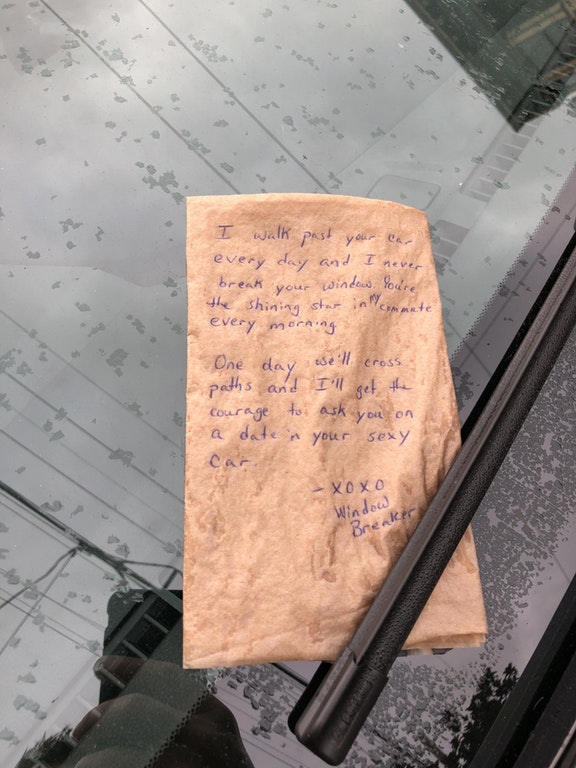 I walk past your car
every day and I never
break your window. You're
the shining star in my commute
every morning
One day we'll cross
paths and I'll get the
courage to ask you on
a date in your sexy
car.
- XOXO
Window
Breaker